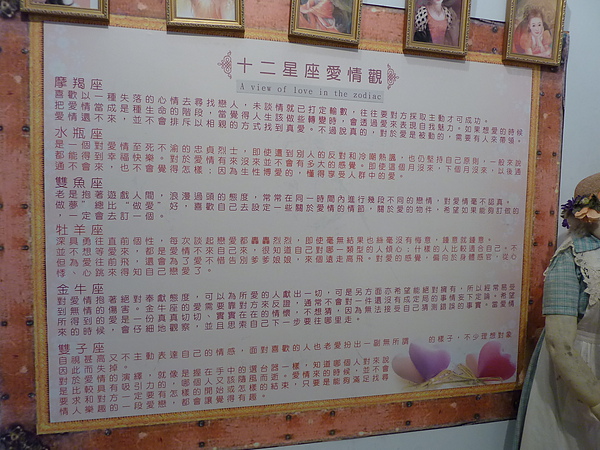 十二星座愛情觀
A view of love in the zodiac
摩羯座
喜歡以一種失落的心情去尋找戀人，未談情就已打定輸數，往往要對方採取主動才可成功。
把愛情當成是種生命的階段，當覺得人生該做些轉變時，會透過愛來表現自我魅力。如果想愛的時候
愛情還不來，並不會排斥以相親的方式找到真愛。不過說真的，對於愛是被動的，需要有人來帶領。
水瓶座
是一個對愛情至死不渝的忠貞烈士，即使遭到別人的反對和冷嘲熱諷，也仍堅持自己原則，一般來說
都能得到幸福快樂。對於愛情有來沒來並不會有多大的感覺。即使這個月沒來，下個月沒來，以後通
通不會來，也不會覺得怎樣；因為生性博愛的，懂得享受人群中的愛。
雙魚座
老是抱著遊戲人間，浪漫過頭的態度，常常在同一時間內進行幾段不同的戀情，對愛情毫不認真。
“做夢”總比“做愛”好，喜歡自己去設定一些關於愛情的情節，關於愛的物件，希望如果能夠訂做的
，一定會去訂一個。
牡羊座
深具勇往直前個性，每次談起戀愛都轟轟烈烈，即使毫無結果也絲毫沒有悔意，鍾意就鍾意。
並不想等愛來，都是愛情不來自己來，很知道自己對哪一類型的人傾心，什樣的人比較適合自己。不
但為愛往前飛，過直為了愛不惜告別爹爹娘娘，來個遠走高飛。對愛的感覺，偏向於身體感官，從心
悸、心跳來得知自己戀愛了。
金牛座
對愛情抱著絕對奉獻態度，可以為所愛的人獻出一切，可是另方面亦希望能絕對擁有，所以經常感受
到無情的傷害。金牛座的愛需要靠對方來反證，通常不會對一件還沒有成定局的事情妄下定論。希望
所得到的愛是一份真真切切、實實在在的情懷，不想猜，因為無法接受自己猜測錯誤的事實。當愛情
來的時候，會仔細地觀察，並且思索自己下一步要往哪里走。
雙子座
自視甚高又不主動表達自己的情感，面對喜歡的人也老愛扮出一副無所謂 的樣子，不少理應對象
因此而失掉。
對於愛情的演繹，就像是握在手中的選台器一樣，知道哪個人對來說
是比較具有吸引力的，哪個人又該隨風而逝。愛情來的時候，並不會
要求和對方一定要有怎樣的開始或怎樣的結束，只要是能夠滿足找尋
情人樂趣的一段愛戀，都會讓覺得有趣。